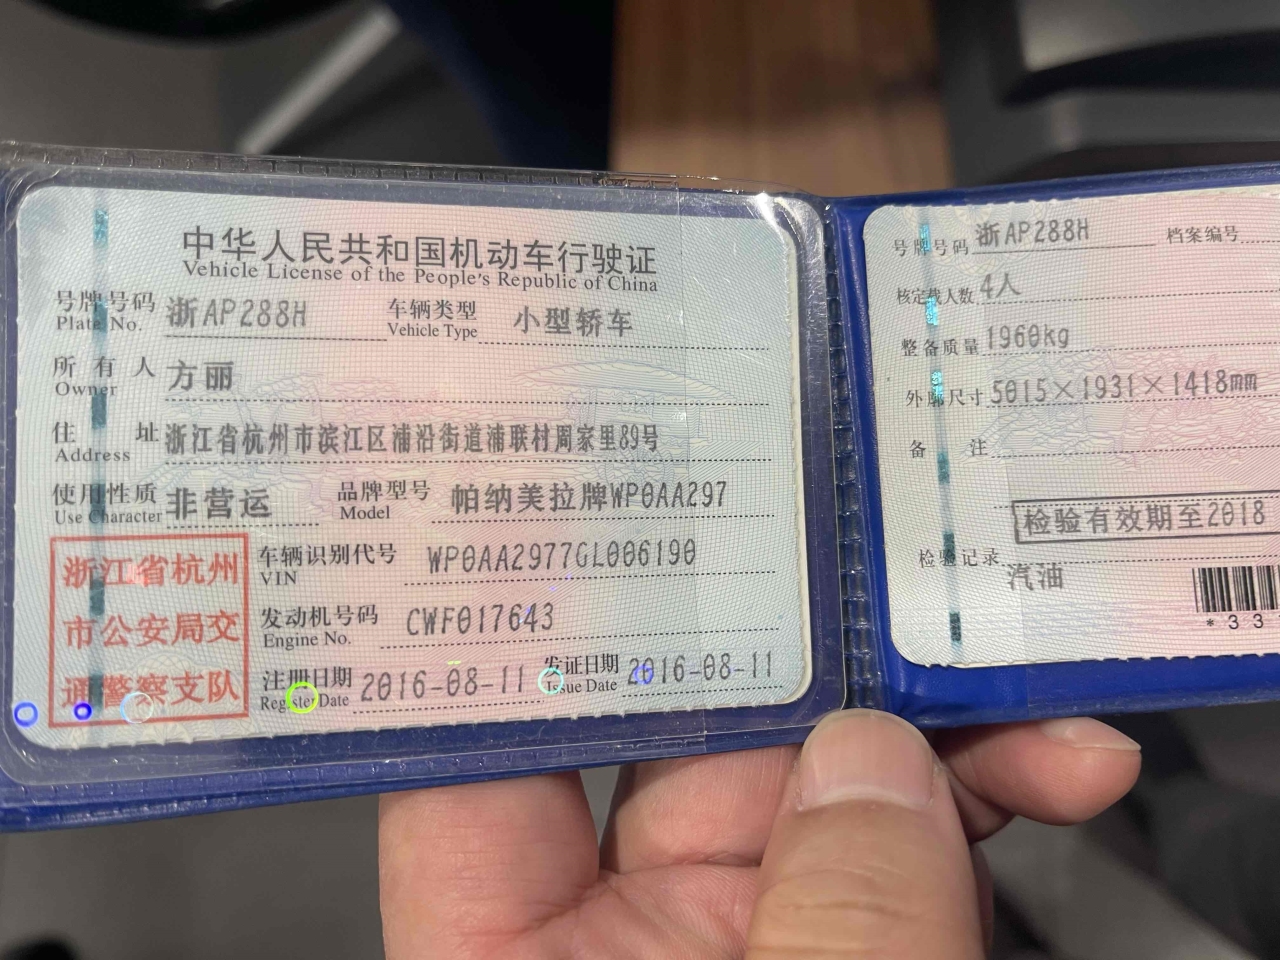 中华人民共和国机动车行驶证
Vehicle License of the People's Republic of China
号牌号码 浙AP288H 车辆类型 小型轿车
Plate No. Vehicle Type
所有人 方丽
Owner
住址 浙江省杭州市滨江区浦沿街道浦联村周家里89号
Address
使用性质 非营运 品牌型号 帕纳美拉牌WP0AA297
Use Character Model
浙江省杭州
市公安局交
通警察支队
车辆识别代号 WP0AA2977GL006190
VIN
发动机号码 CWF017643
Engine No.
注册日期 2016-08-11 发证日期 2016-08-11
Register Date Issue Date
号牌号码 浙AP288H 档案编号
核定载人数 4人
整备质量 1960kg
外廓尺寸 5015×1931×1418mm
备注
检验有效期至2018
检验记录
汽油
*33